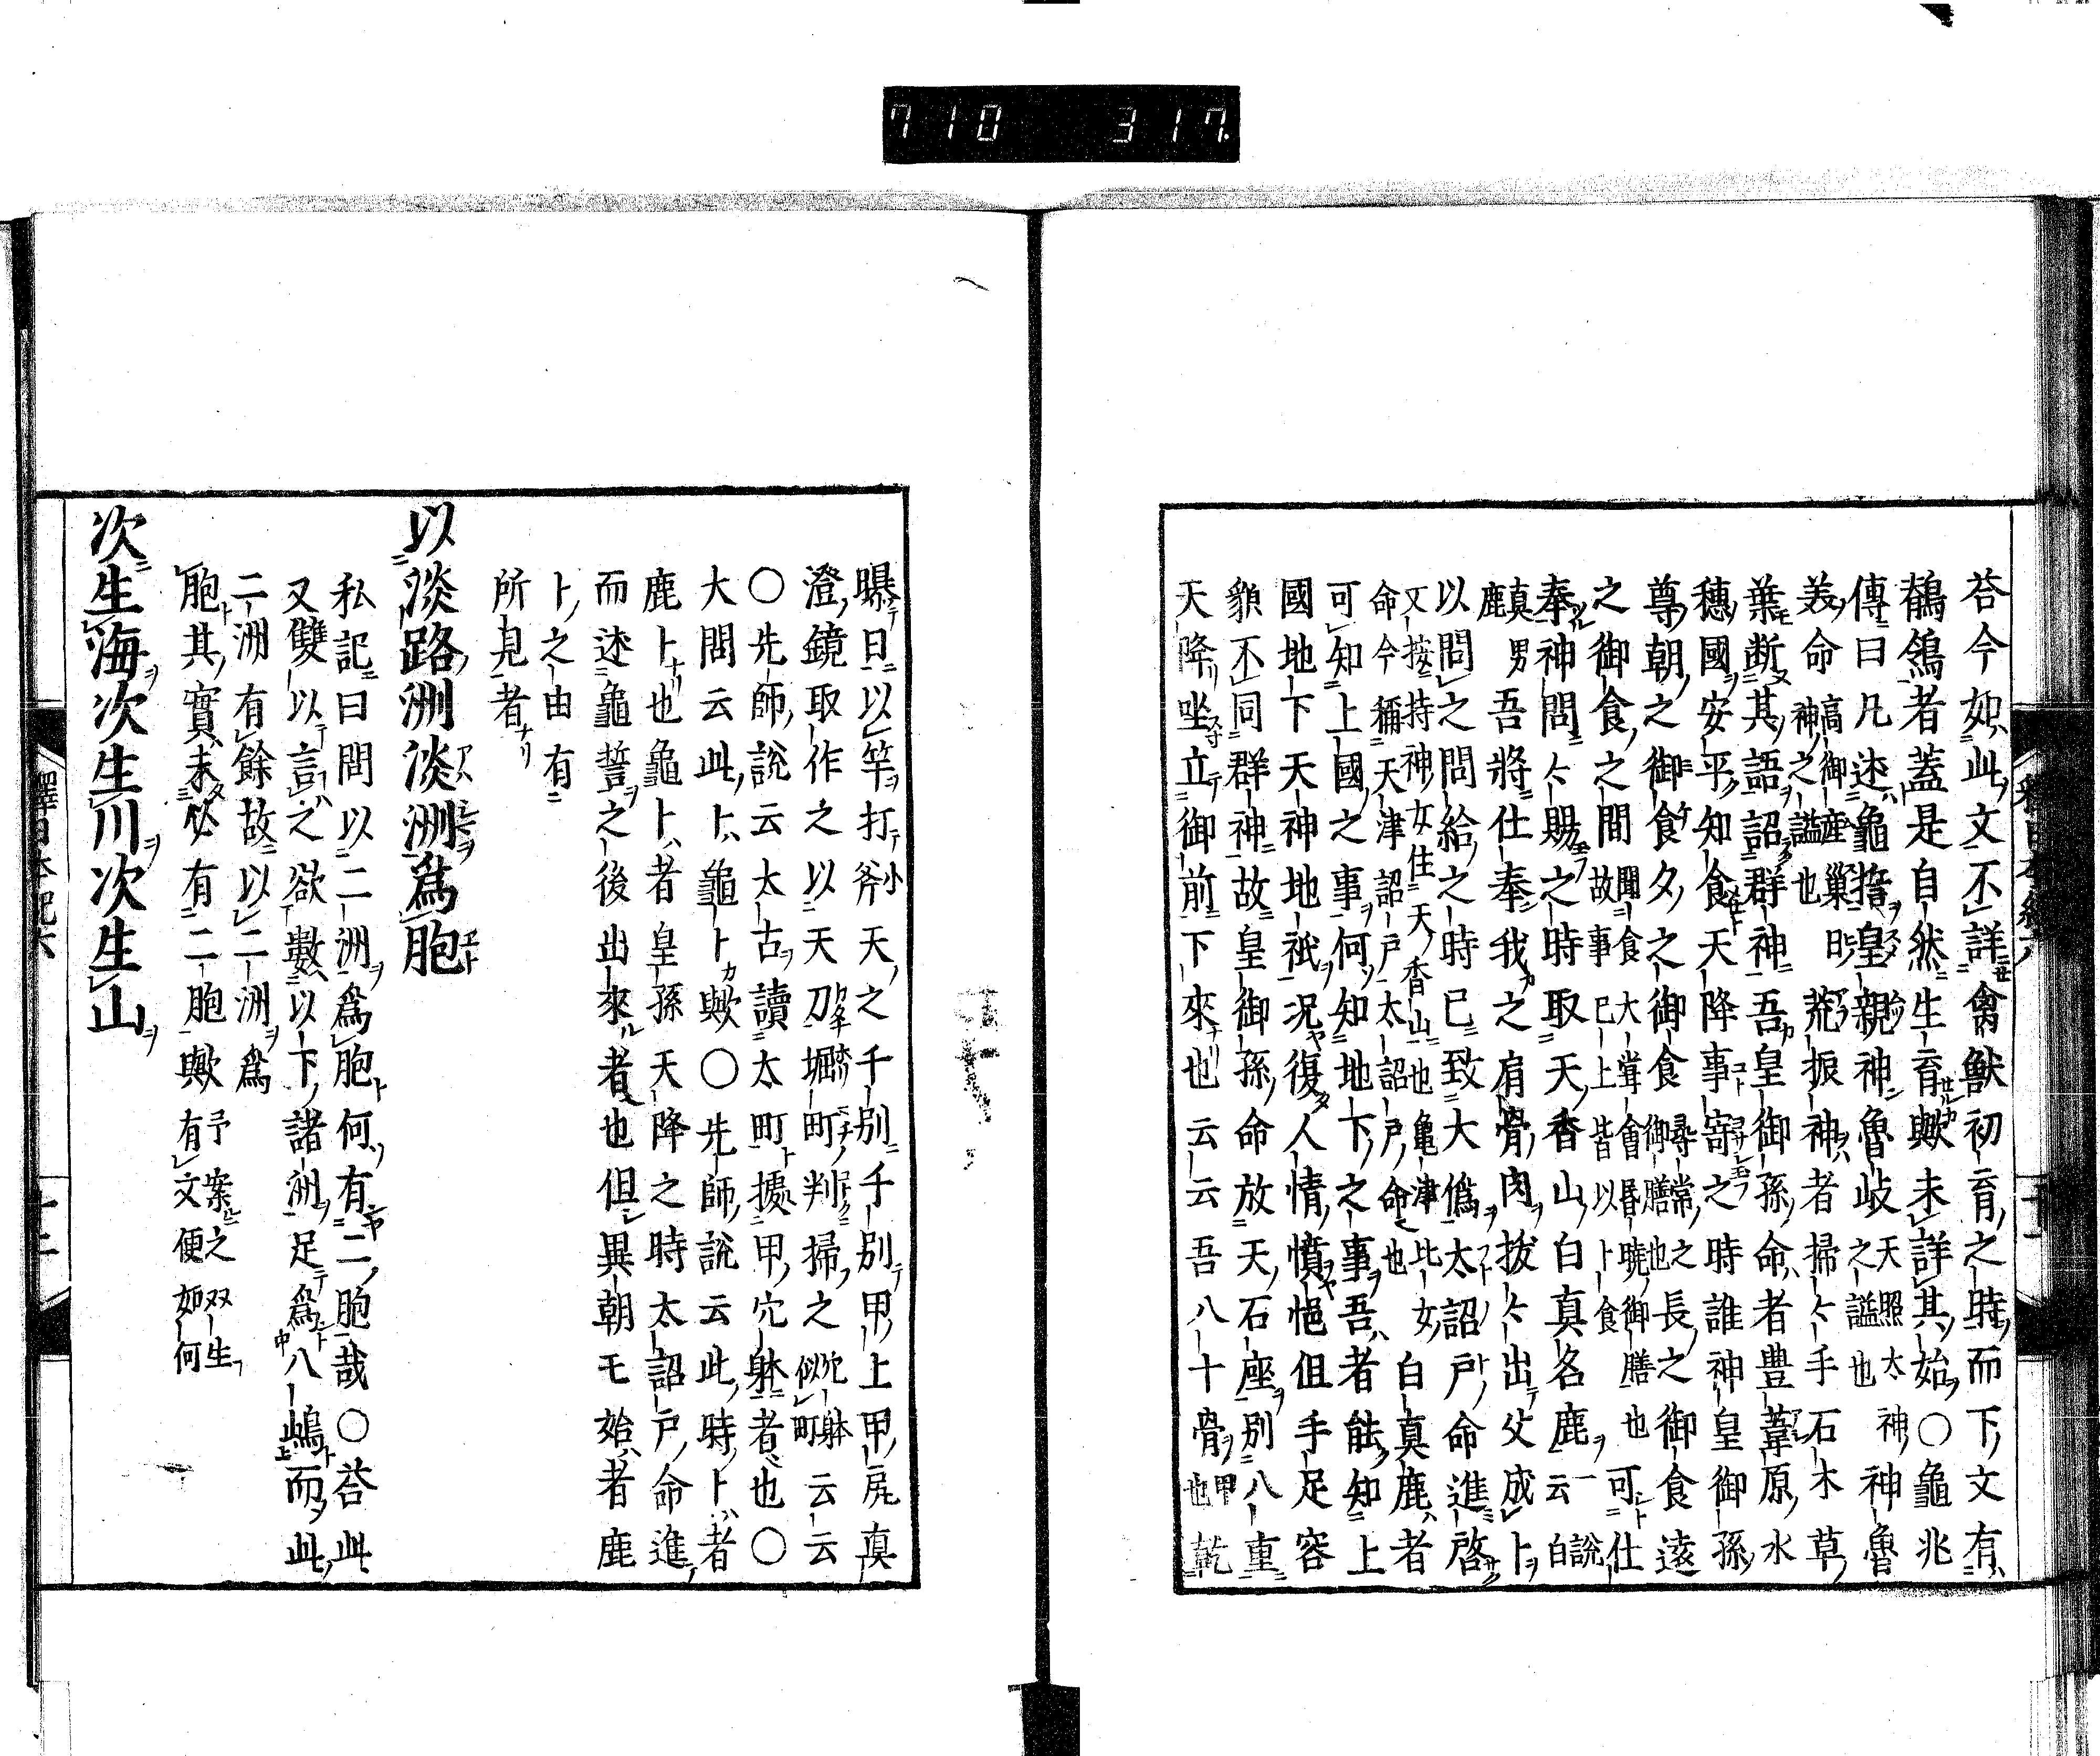 710 317
荅今如此文不詳禽獣初育之時而下文有
鶺鴒者蓋是自然生育歟未詳其始○龜兆
傳曰凡述龜誓皇親神魯岐天照太神之謚也神魯
美命高御産巣日神之謚也荒振神者掃々手石木草
葉断其語詔群神吾皇御孫命者豊葦原水
穗國安平知食天降事寄之時誰神皇御孫
尊朝之御食夕之御食尋常之御膳也長之御食遠
之御食之間聞食大嘗會昬曉御膳也故事已上皆以卜食可仕
奉神問々賜之時取天香山白真名鹿一説云白
真男鹿吾將仕奉我之肩骨内拔々出父成卜
以問之問給之時已致大僞太詔戸命進啓
又按持神女住天香山也亀津比女命今稱天津詔戸太詔戸命也白真鹿者
可知上國之事何知地下之事吾者能知上
國地下天神地祇况復人情憤悒但手足容
貌不同群神故皇御孫命放天石座別八重
天降坐立御前下來也云云吾八十骨甲也乾
曝日以竿打小斧天之千別千別甲上甲尻真
澄鏡取作之以天刀堀町判掃之穴躰似町云云
○先師說云太古讀太町據甲穴躰者也○
大問云此卜龜卜歟○先師說云此時卜者
鹿卜也龜卜者皇孫天降之時太詔戸命進
而述龜誓之後出來者也但異朝モ始者鹿
卜之由有
所見者
以淡路洲淡洲爲胞
私記曰問以二洲爲胞何有二胞哉○荅此
又雙以言之欲數以下諸洲足爲八嶋而此
二洲有餘故以二洲爲
胞其實末必有二胞歟予案之双生有文便如何
次生海次生川次生山
釋日本紀六
十二